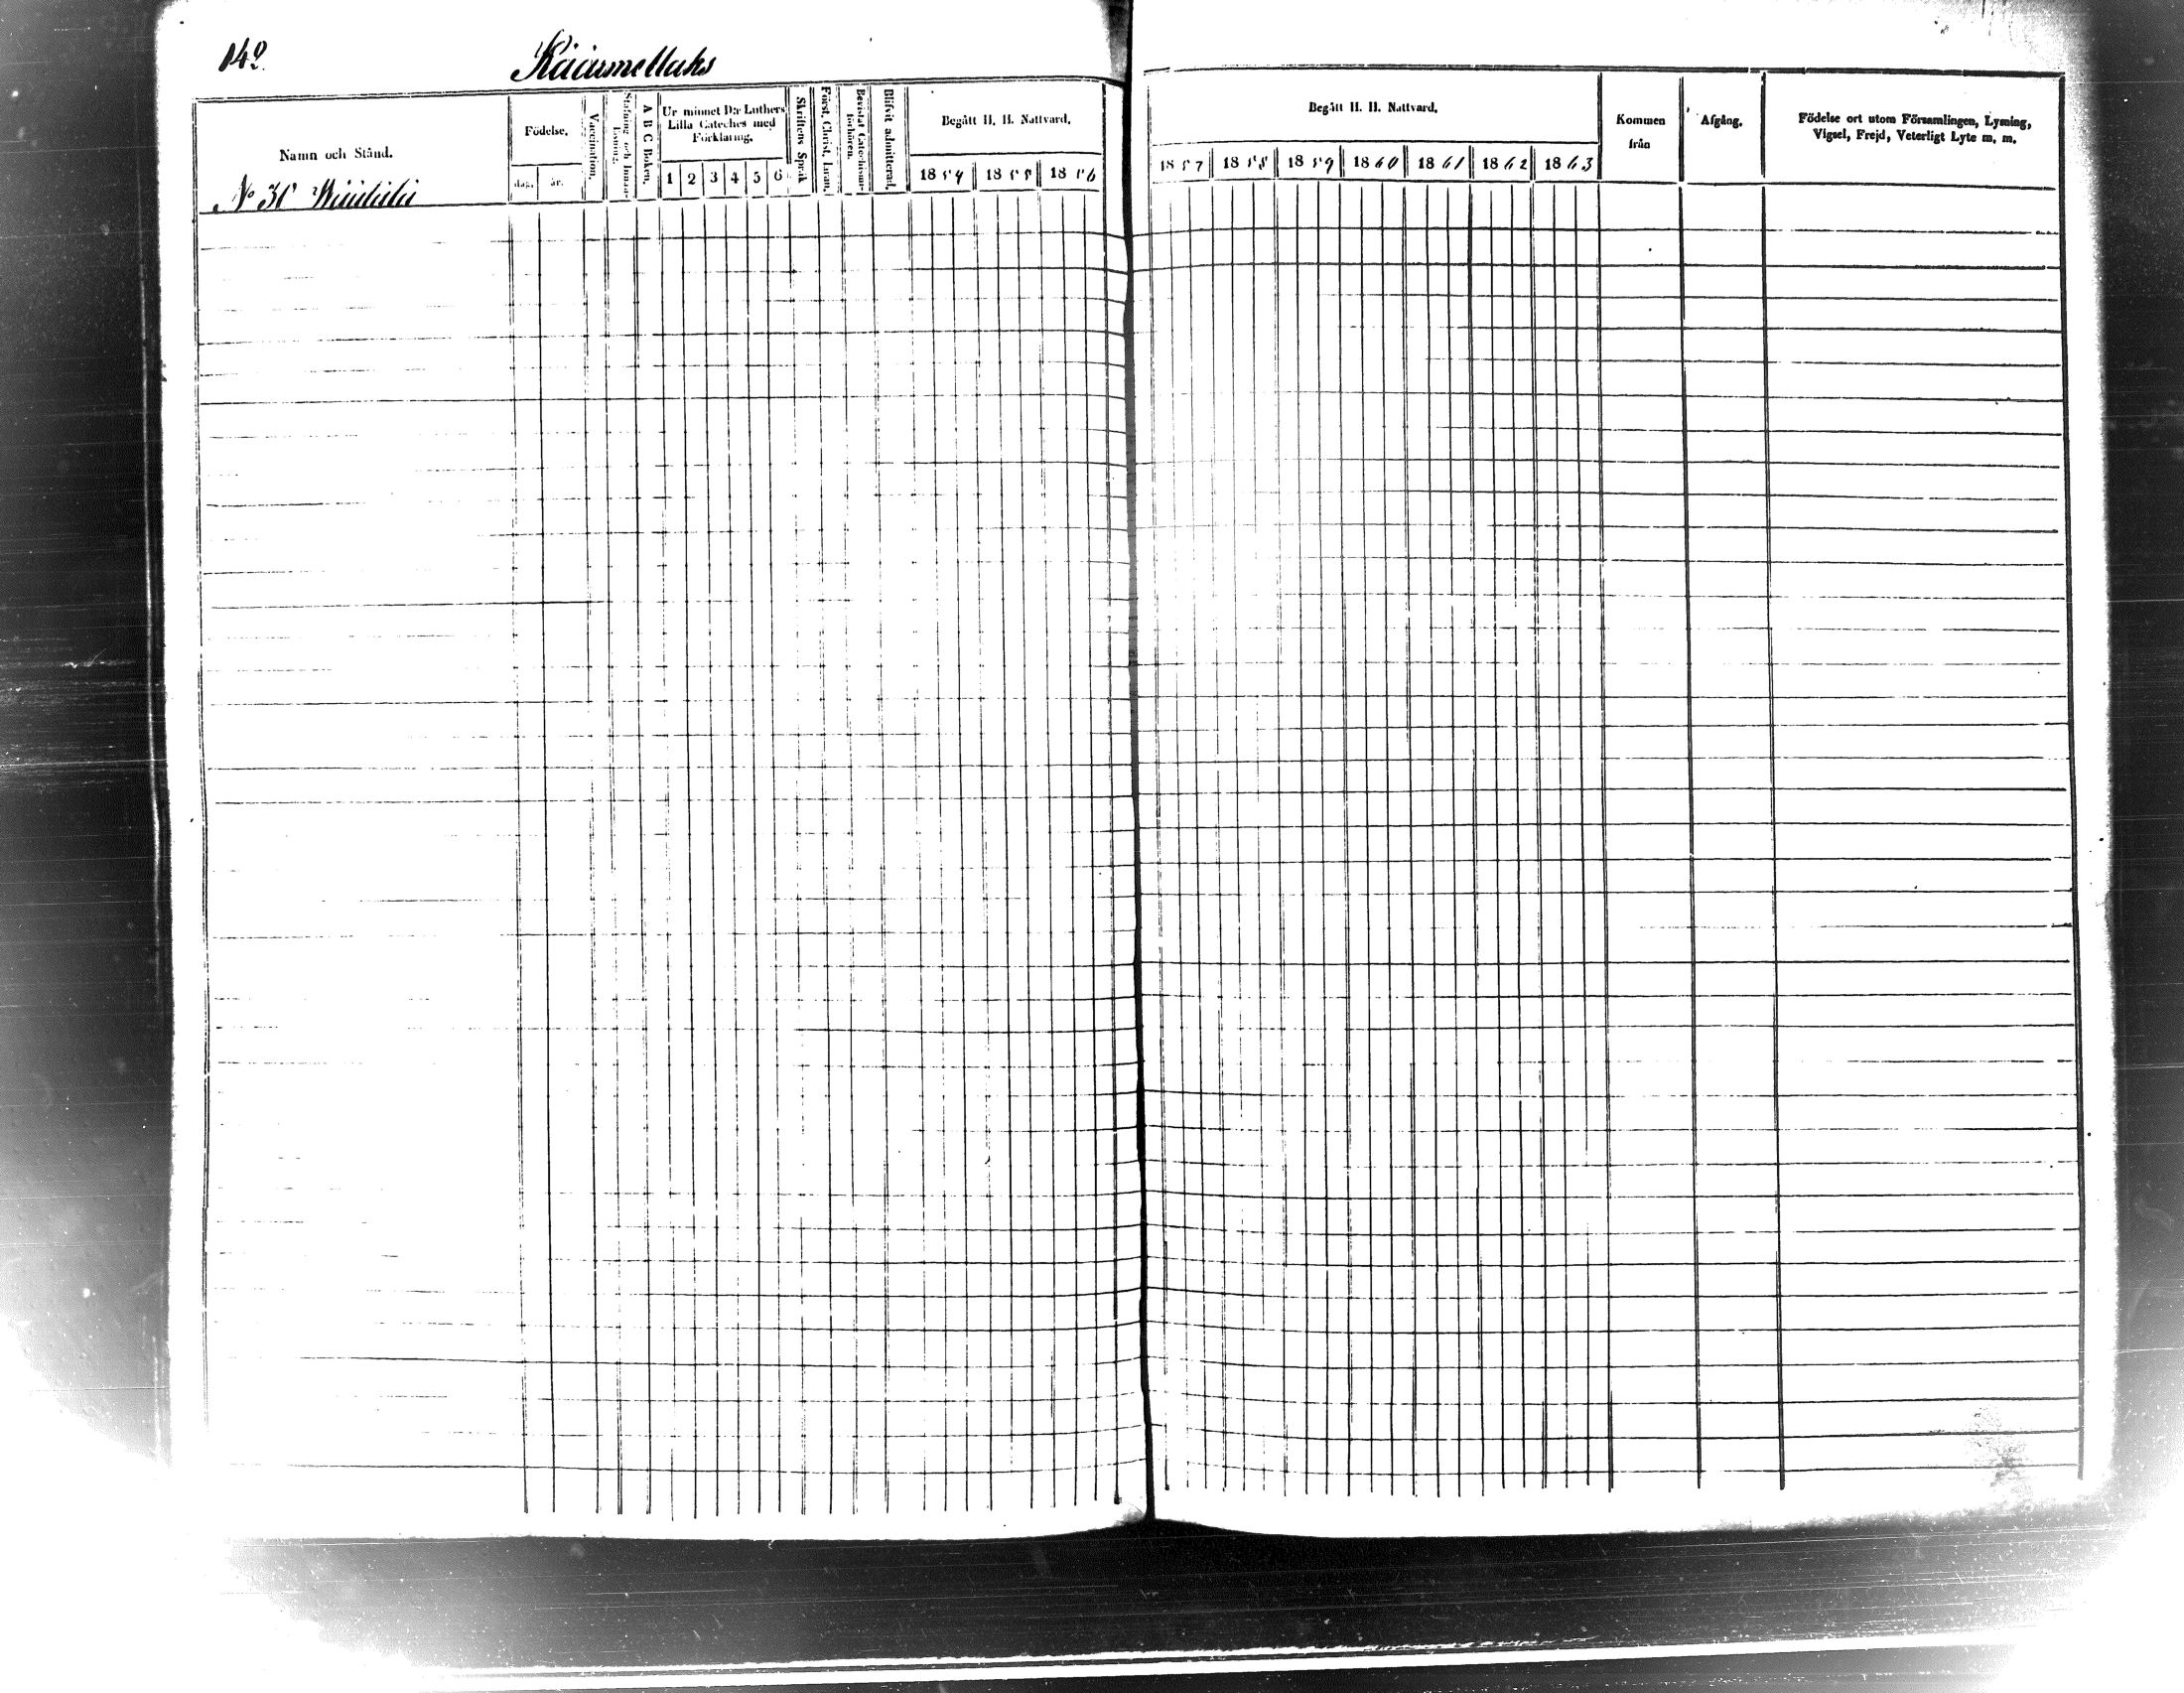 142.
Kaarmellaks
Namn och Stånd.
Födelse.
dag. år.
Vaccination.
Stafning och Innan-Läsning.
A B C Boken.
Ur minnet D:r Luthers Lilla Cateches med Förklaring.
1 2 3 4 5 6
Skriftens Språk
Först. Christ. Läran.
Bevistat Catechismi-förhören.
Blifvit admitterad.
Begått H. H. Nattvard.
1854 1855 1856
Begått H. H. Nattvard.
1857 1858 1859 1860 1861 1862 1863
Kommen från
Afgång.
Födelse ort utom Församlingen, Lysning,
Vigsel, Frejd, Veterligt Lyte m. m.